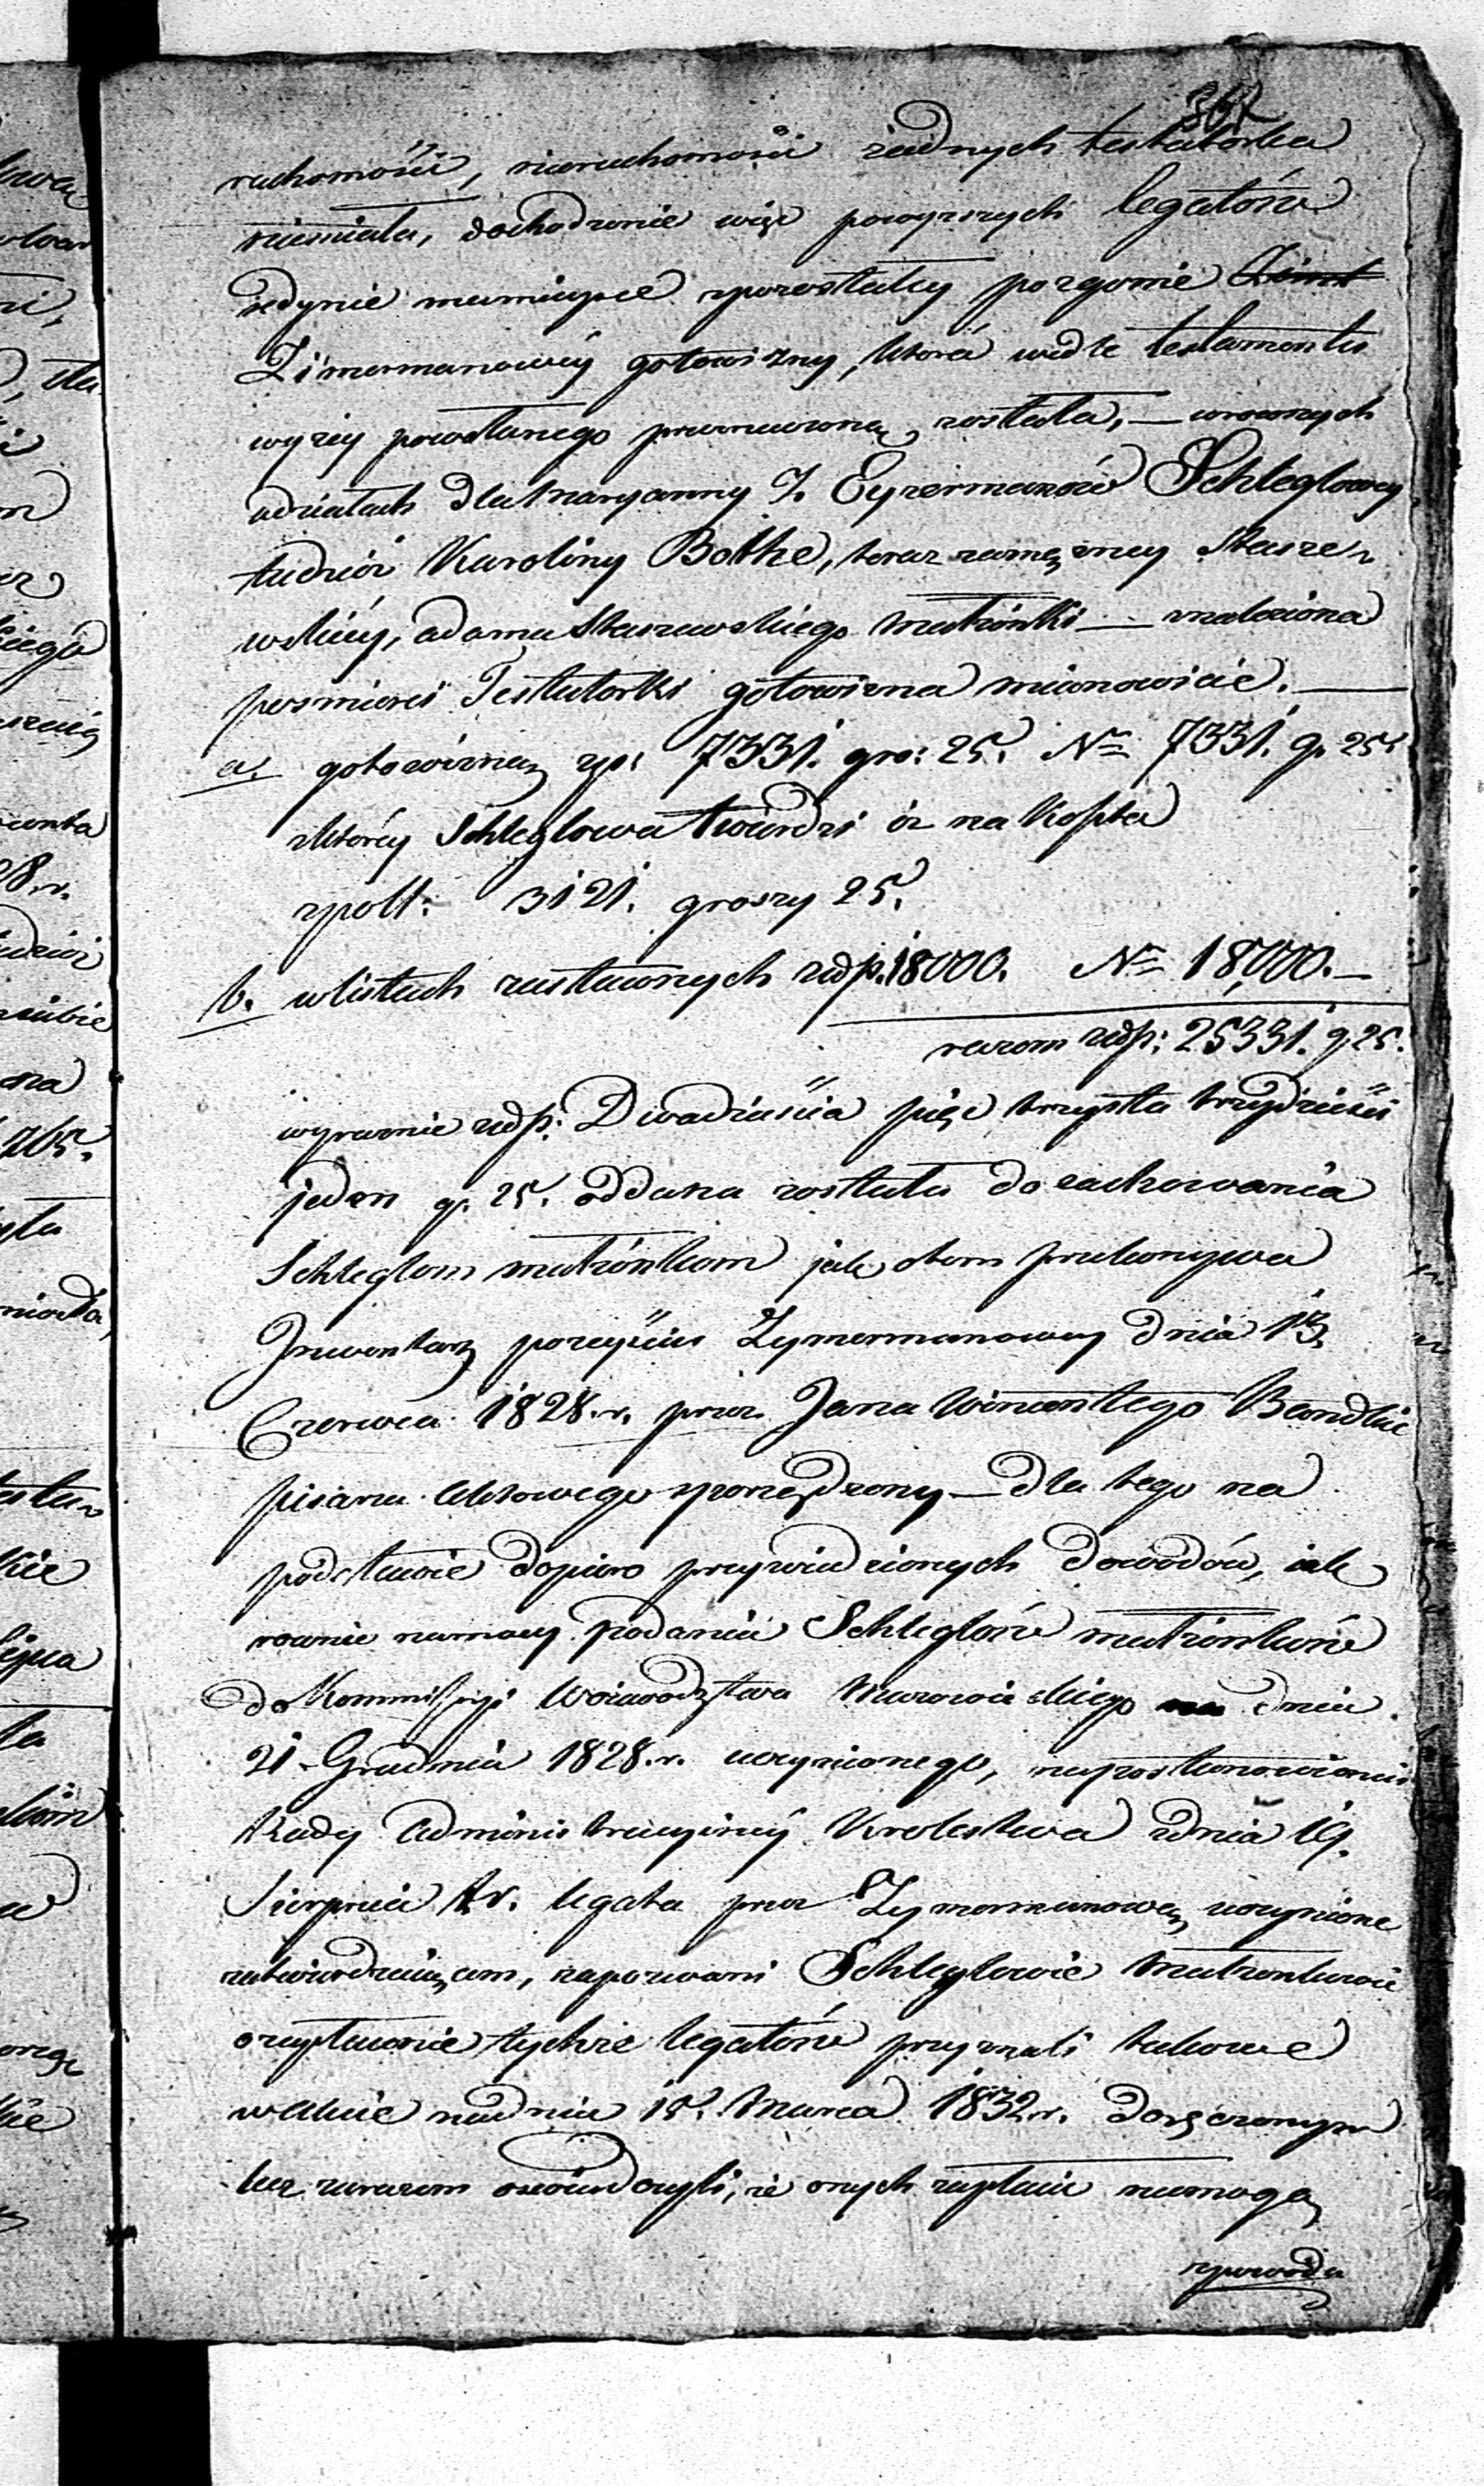 ruchomości, nieruchomości żadnych testatorka
niemiała, dochodzenie więc powyższych legatów
jedynie mamieysce zpozostałey pozgonie Zimt
Zimermanowéy gotowizny, która wedle testamentu
wyzey powołanego przeznaczoną została, — wrownych
udziałach dla Maryanny Z. Eyzermanów Schleglowey
tudzież Karoliny Bothe, teraz zamężney Stasze-
wskiéy, adama Staszewskiego małżonki — znaleziona
pośmierci Testatorki gotowizna mianowicie. —
a. gotowizną zp: 7331. gro: 25. No 7331. g. 25.
zktórey Schleglowa twierdzi iż na koszta
zpolt: 3121. groszy 25.
b. wlistach zastawnych złp. 18000. No 18,000. —
razem złp: 25331. g. 25.
wyraznie złp: Dwadzieścia pięć trzysta trzydzieści
jeden g. 25. oddana została do zachowania
Schleglom małżonkom jak otem przekonywa
Inwentarz pozeyściu Zymermanowey dnia 13
Czerwca 1828. r. przez Jana Wincentego Bandtkie
pisarza aktowego sporządzony — dla tego na
podstawie dopiero przywiedzionych dowodów, iak
rownie namocy podania Schleglów małżonków
do Kommissyi Woiewodztwa Mazowieckiego dnia
21 Grudnia 1828. r. uczynionego, napostanowienie
Rady Administracyinéy Krolestwa zdnia 19.
Sierpnia t. r. legata przez Zymermanowę uczynione
zatwierdzaiącem, zapozwani Schleglowie Małżonkowie
ozapłacenie tychże legatów przyznali takowe
wakcie nadniu 15. Marca 1832. r. doręczonym
lecz zarazem oswiadczyli, iż onych zapłacić niemogą
zpowodu